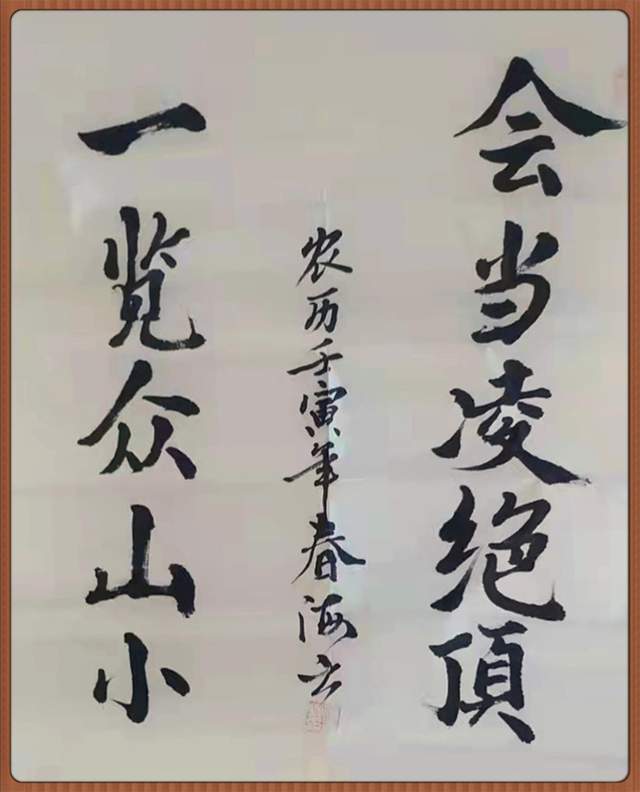 会当凌绝頂
一览众山小
农历壬寅年春海云